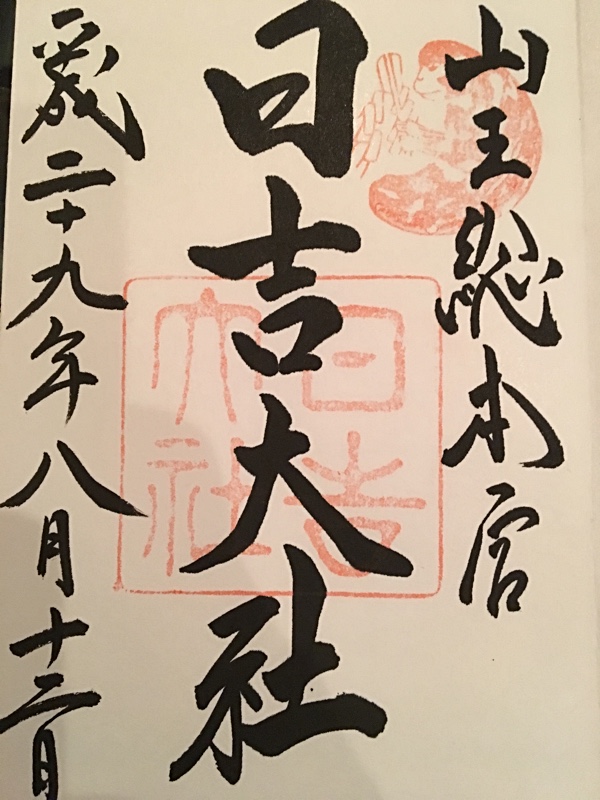 山王総本宮
日吉大社
平成二十九年八月十三日
日吉大社